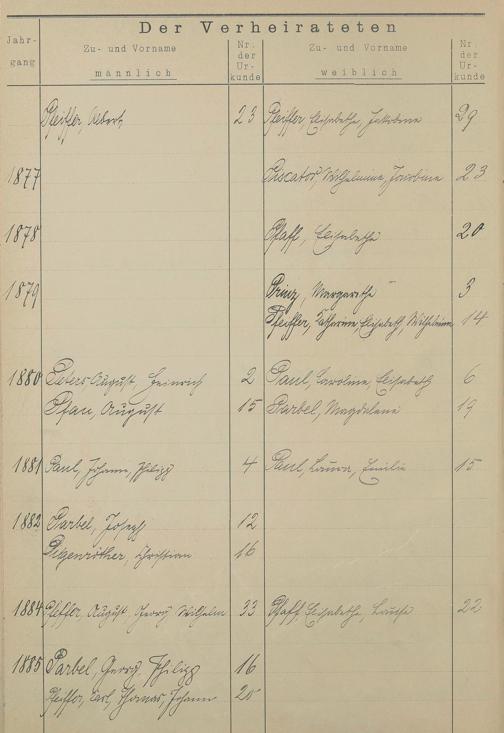 Der Verheirateten
Jahrgang Zu- und Vorname männlich Nr. der Urkunde Zu- und Vorname weiblich Nr. der Urkunde
Pfeiffer, Albert 23 Pfeiffer, Elisabethe, Jakobine 29
1877 Piscator, Wilhelmine, Jacobine 23
1878 Pfaff, Elisabethe 20
1879 Prinz, Margarethe 3
Pfeiffer, Catharine, Elisabeth, Wilhelmine 14
1880 Peters August, Heinrich 2 Paul, Caroline, Elisabeth 6
Pfau, August 15 Parbel, Magdalene 19
1881 Paul, Johann, Philipp 4 Paul, Laura, Emilie 15
1882 Parbel, Joseph 12
Christian 16
1884 Pfeiffer, August, Georg Wilhelm 33 Pfaff, Elisabethe, 22
1885 Parbel, Georg, Philipp 16
Pfeiffer, Carl, Thomas, Johann 20